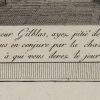 our Gilblas, ayez pitié de
us en conjure par la char
à qui vous devez le jour